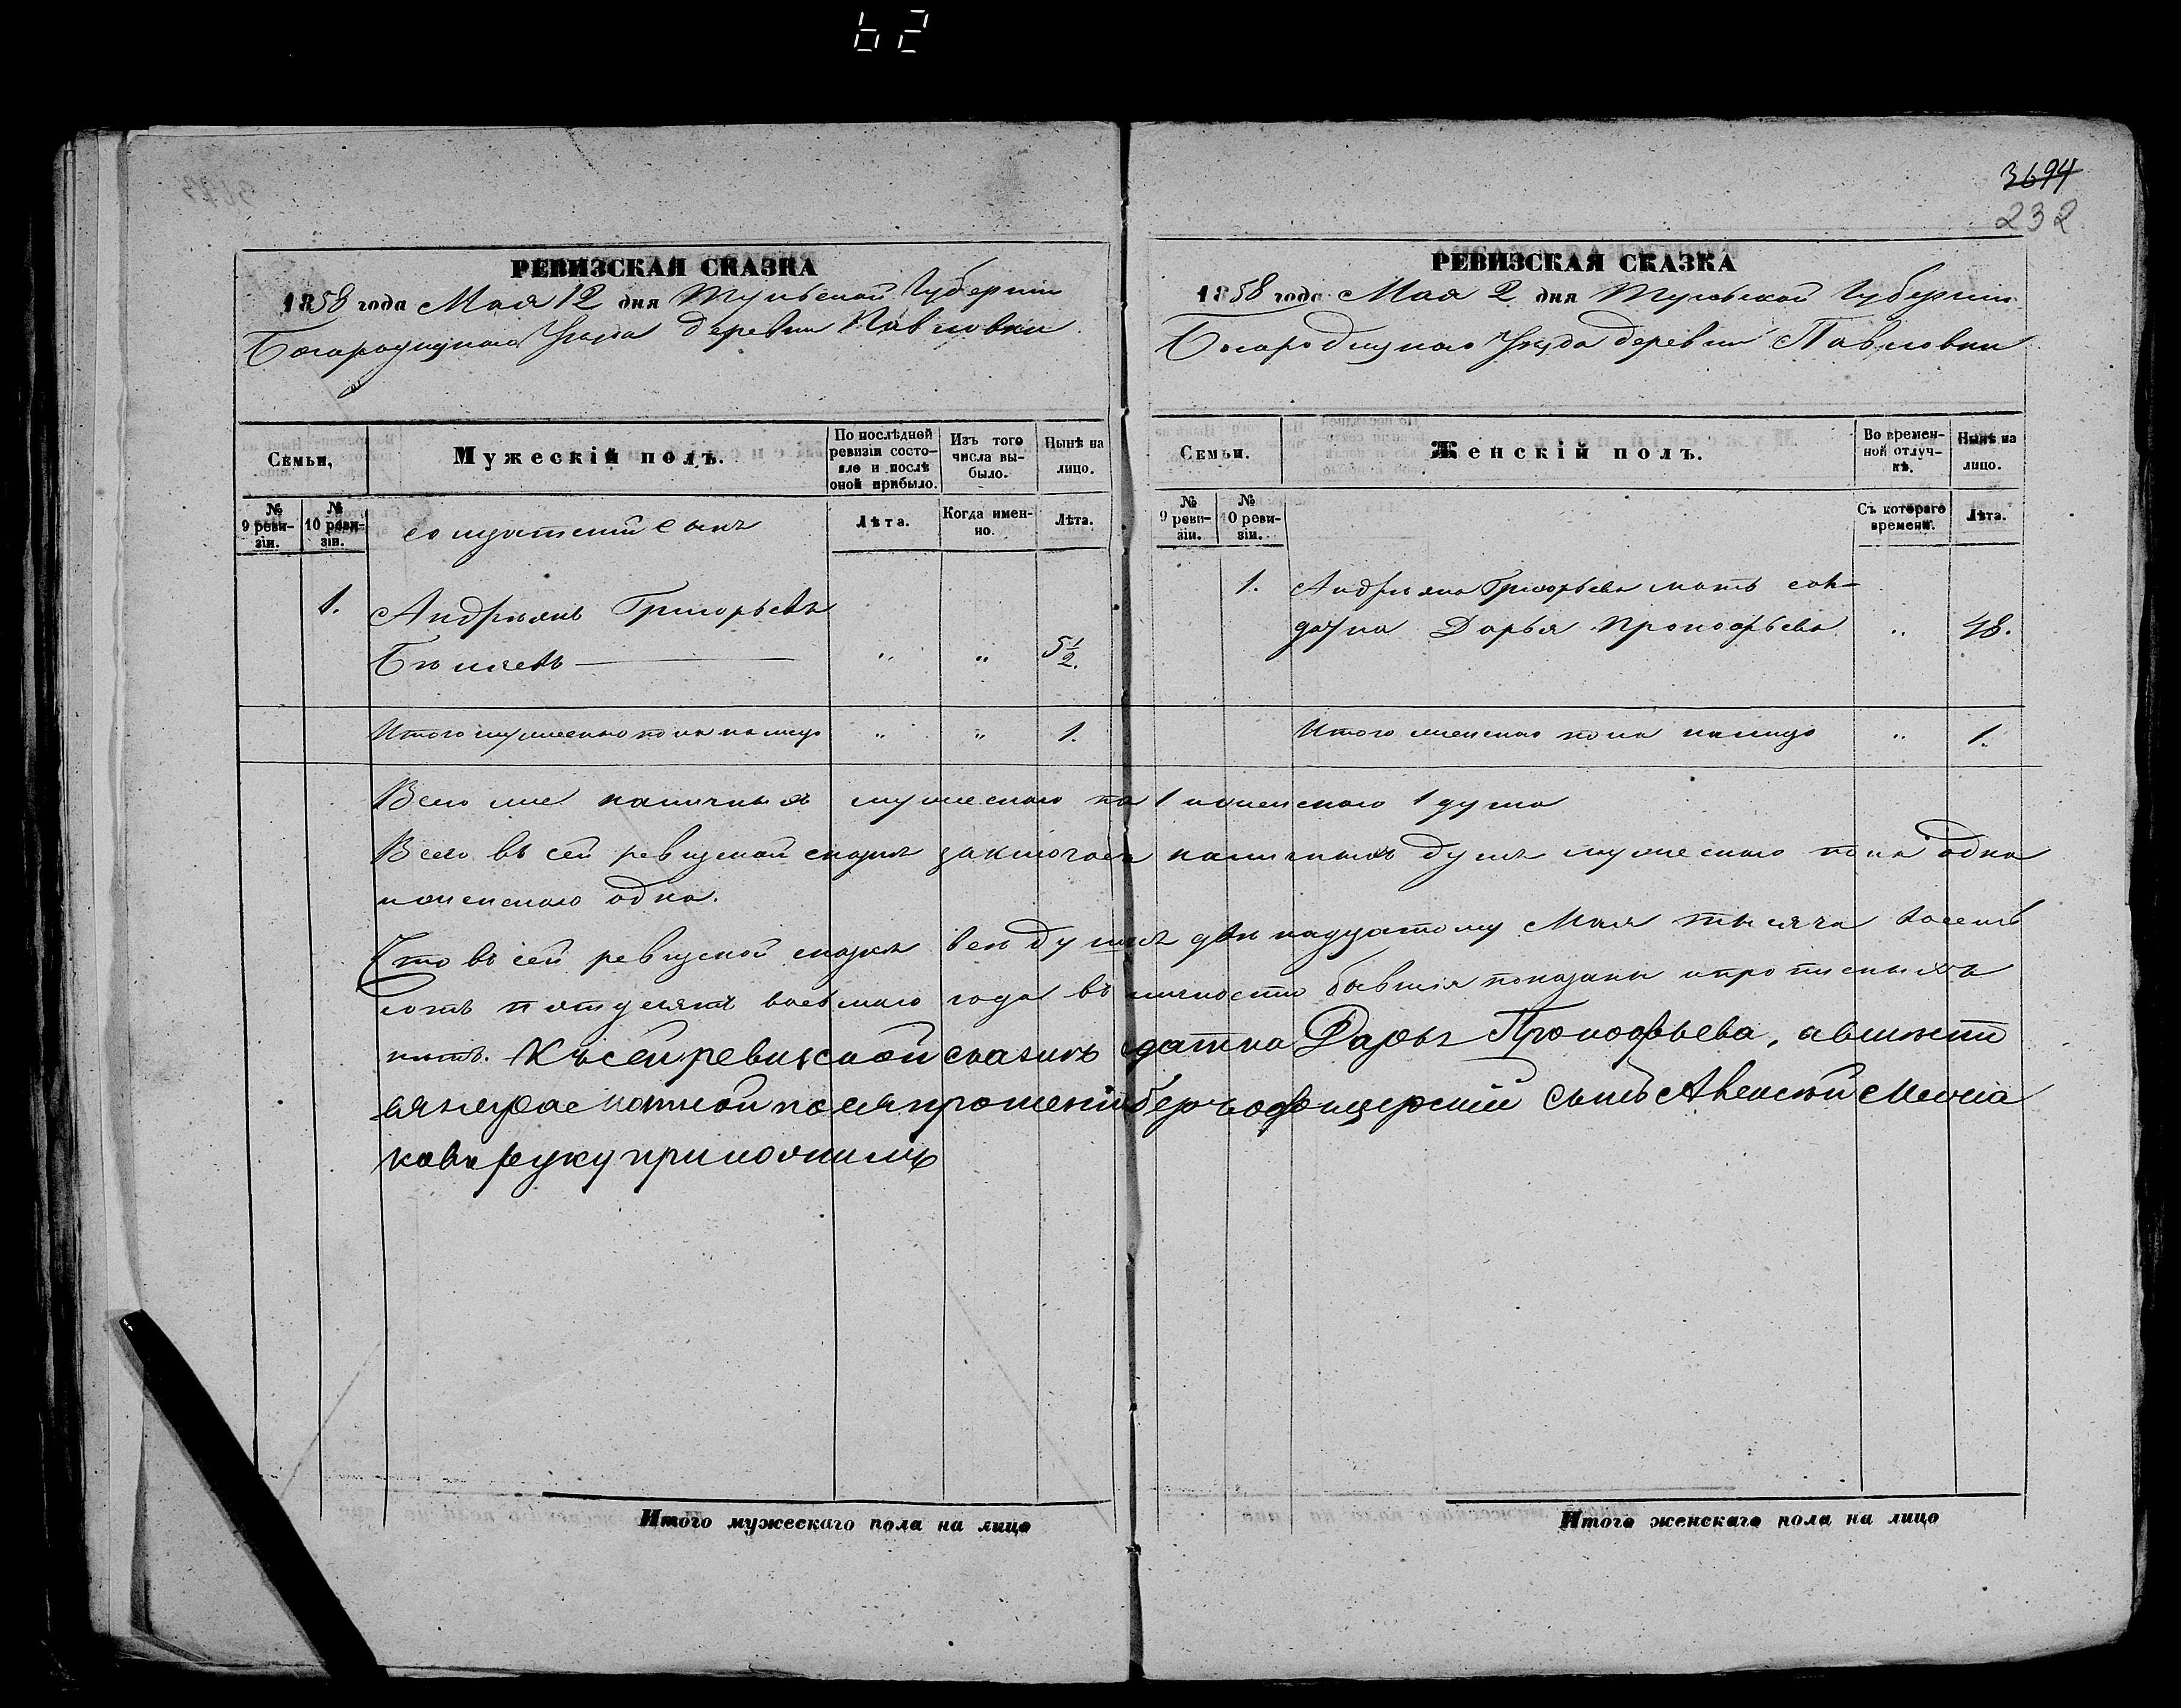 62
3694
232
РЕВИЗСКАЯ СКАЗКА
1858 года Мая 12 дня Тульской Губернии
Богородицкаго Уезда деревни Павловки
Семьи,
Мужескій полъ.
По послѣдней ревизіи состояло и послѣ оной прибыло.
Изъ того числа выбыло.
Нынѣ на лицо.
№ 9 ревизіи.
№ 10 ревизіи.
солдатский сынъ
Лѣта.
Когда именно.
Лѣта.
1.
Андриянъ Григорьевъ
" " 5 1/2.
Итого мужескаго пола налицо " " 1.
Итого мужескаго пола на лицо
РЕВИЗСКАЯ СКАЗКА
1858 года Мая 2 дня Тульской Губернии
Богородицкаго Уезда деревни Павловки
Семьи.
Женскій полъ.
Во временной отлучкѣ.
Нынѣ на лицо.
№ 9 ревизіи.
№ 10 ревизіи.
Съ котораго времени.
Лѣта.
1. Андрияна Григорьева мать сол-
датка Дарья Прокофьева " 48.
Итого женскаго пола налицо " 1.
Всего же наличныхъ мужескаго по 1 и женскаго 1 душа
Всего въ сей ревизской сказке заключается наличныхъ душъ мужескаго пола одна
и женскаго одна.
Что въ сей ревизской сказке все души двенадцатому Мая тысяча восемь
сотъ пятьдесятъ восьмаго года въ личности бывшия показаны и прописныхъ
нетъ. Къ сей ревиской сказкъ датка Дарья Прокофьева, а вместо
ея неграмотной по ея прошению оберъ офицерский сынъ Алексей
руку приложилъ
Итого женскаго пола на лицо